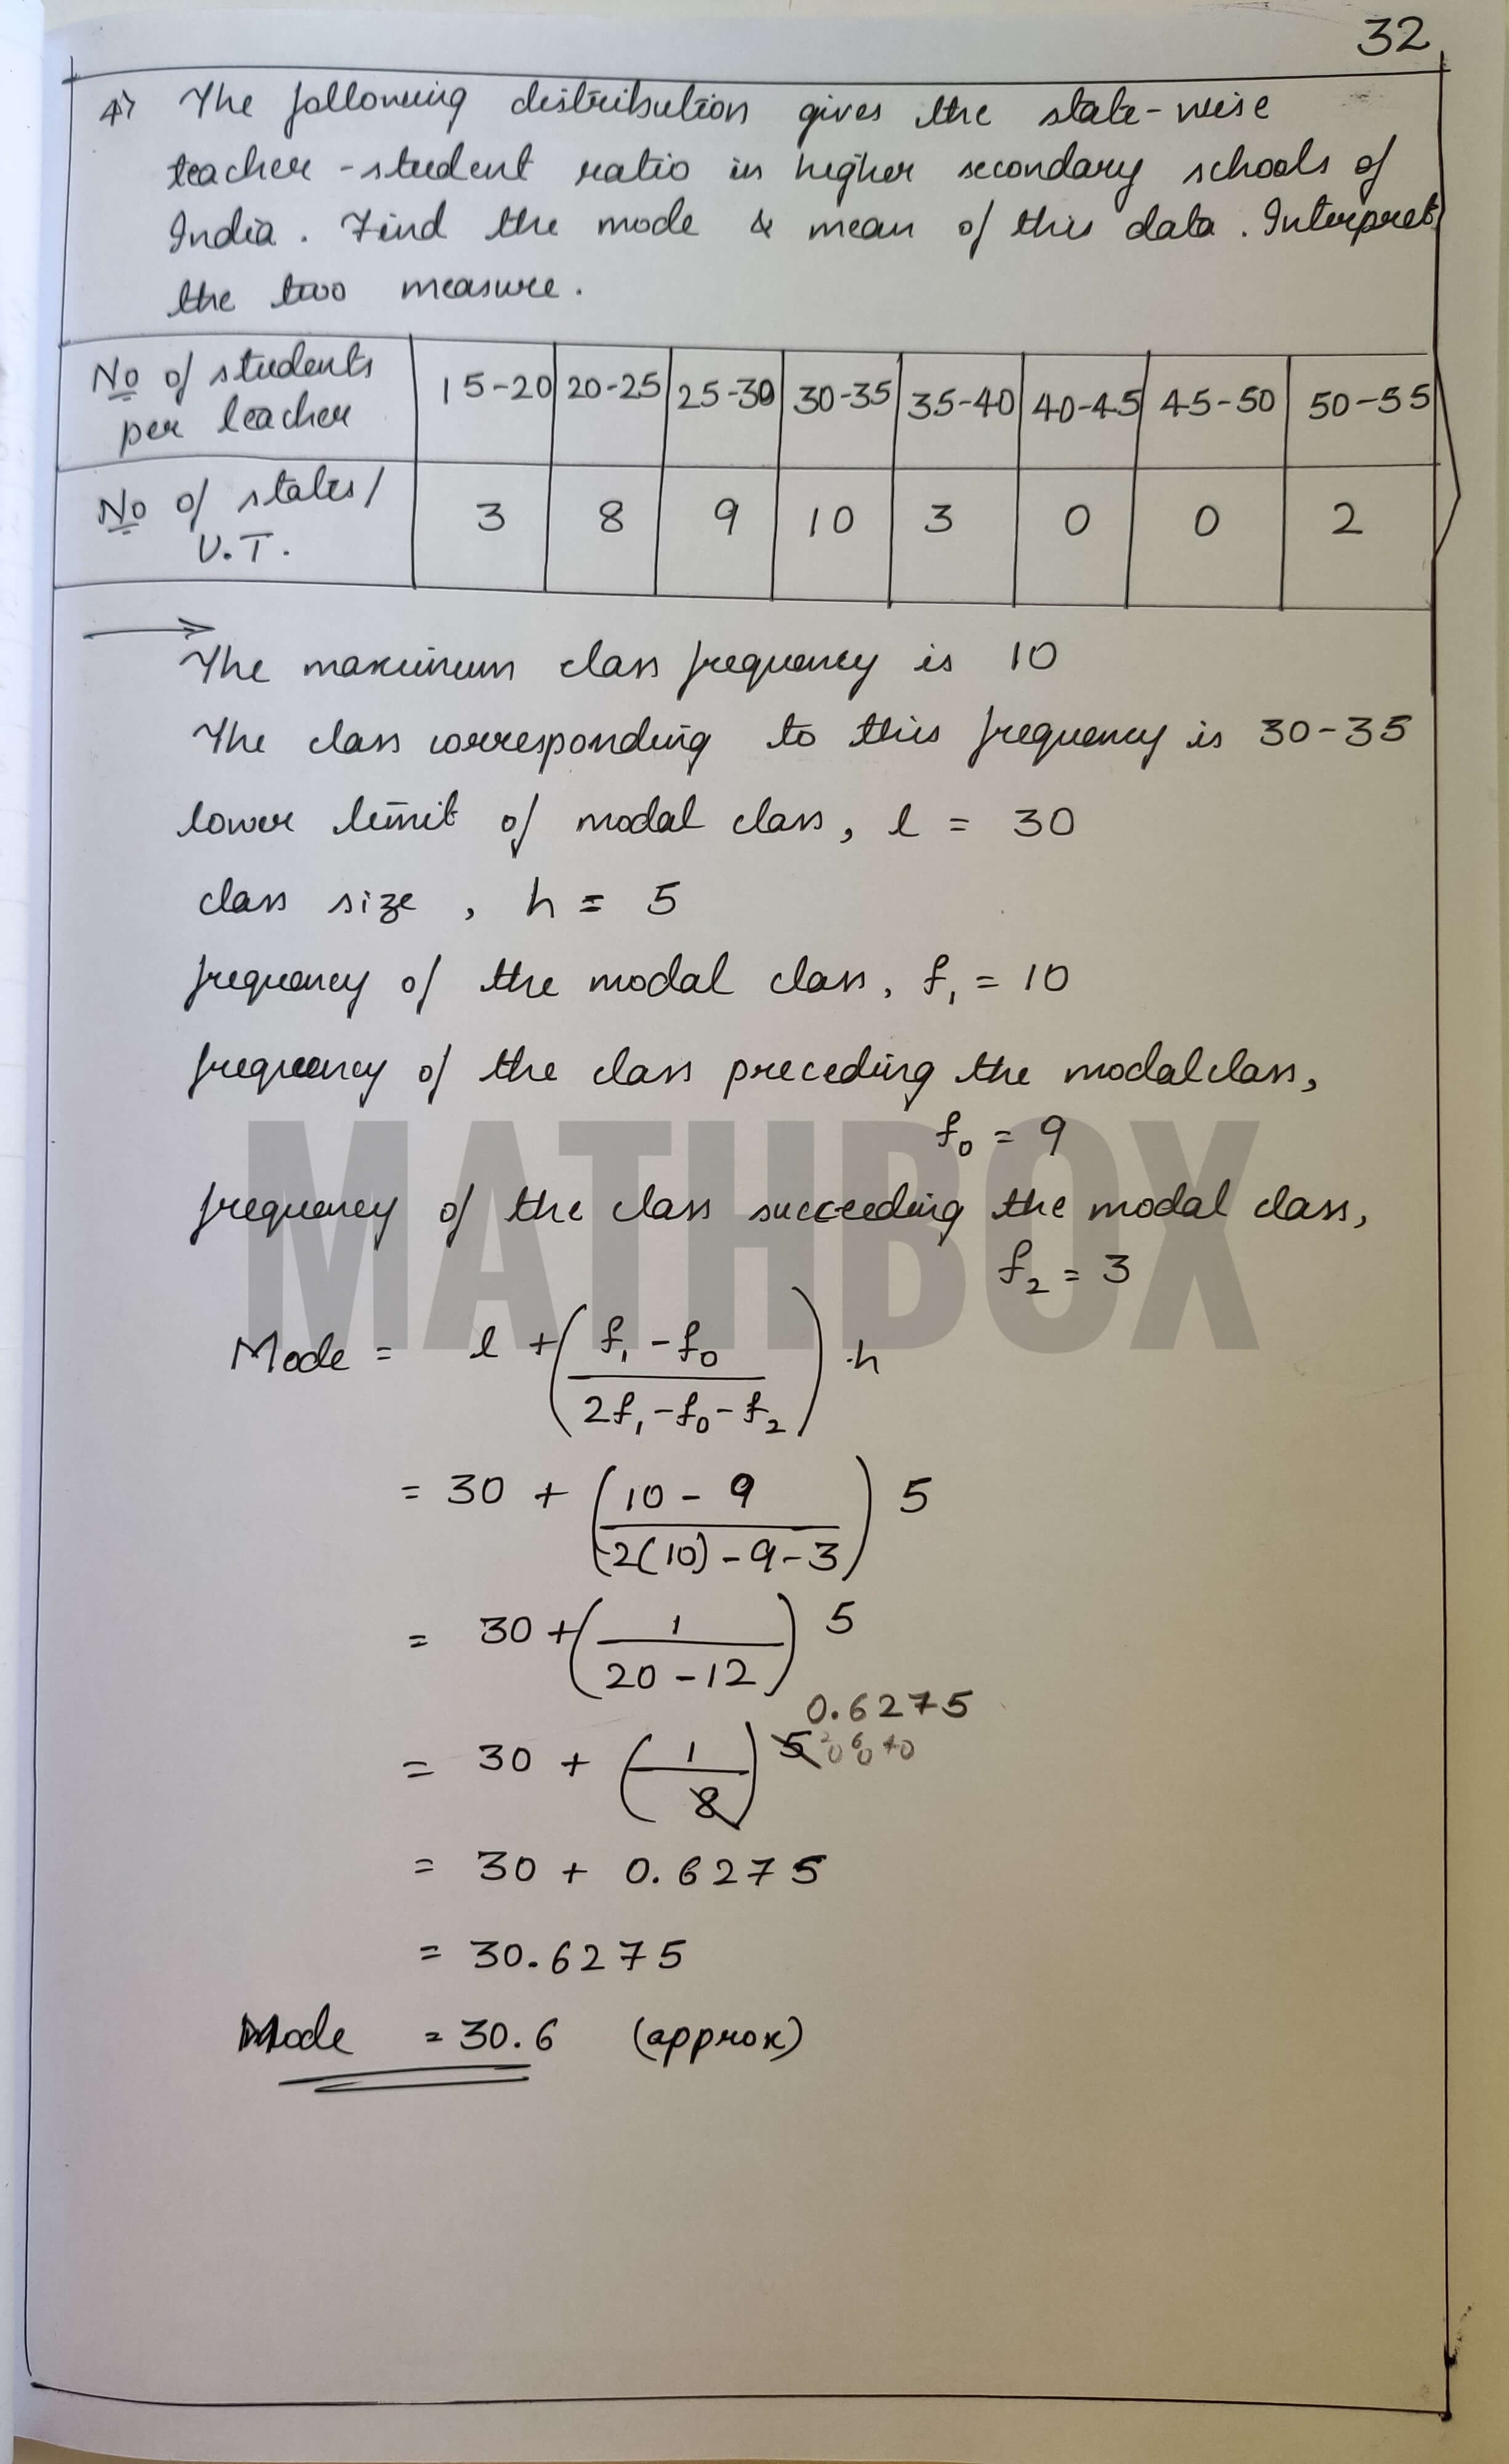 32
4) The following distribution gives the state-wise
teacher-student ratio in higher secondary schools of
India. Find the mode & mean of this data. Interpret
the two measure.
No of students per teacher | 15-20 | 20-25 | 25-30 | 30-35 | 35-40 | 40-45 | 45-50 | 50-55
No of states/ U.T. | 3 | 8 | 9 | 10 | 3 | 0 | 0 | 2
→ The maximum class frequency is 10
The class corresponding to this frequency is 30-35
lower limit of modal class, l = 30
class size, h = 5
frequency of the modal class, f₁ = 10
frequency of the class preceding the modal class,
f₀ = 9
frequency of the class succeeding the modal class,
f₂ = 3
MATHBOX
Mode = l + ( (f₁ - f₀) / (2f₁ - f₀ - f₂) ) · h
= 30 + ( (10 - 9) / (2(10) - 9 - 3) ) 5
= 30 + ( 1 / (20 - 12) ) 5
0.6275
= 30 + ( 1 / 8 ) 5 20 60 40
= 30 + 0.6275
= 30.6275
Mode = 30.6 (approx)